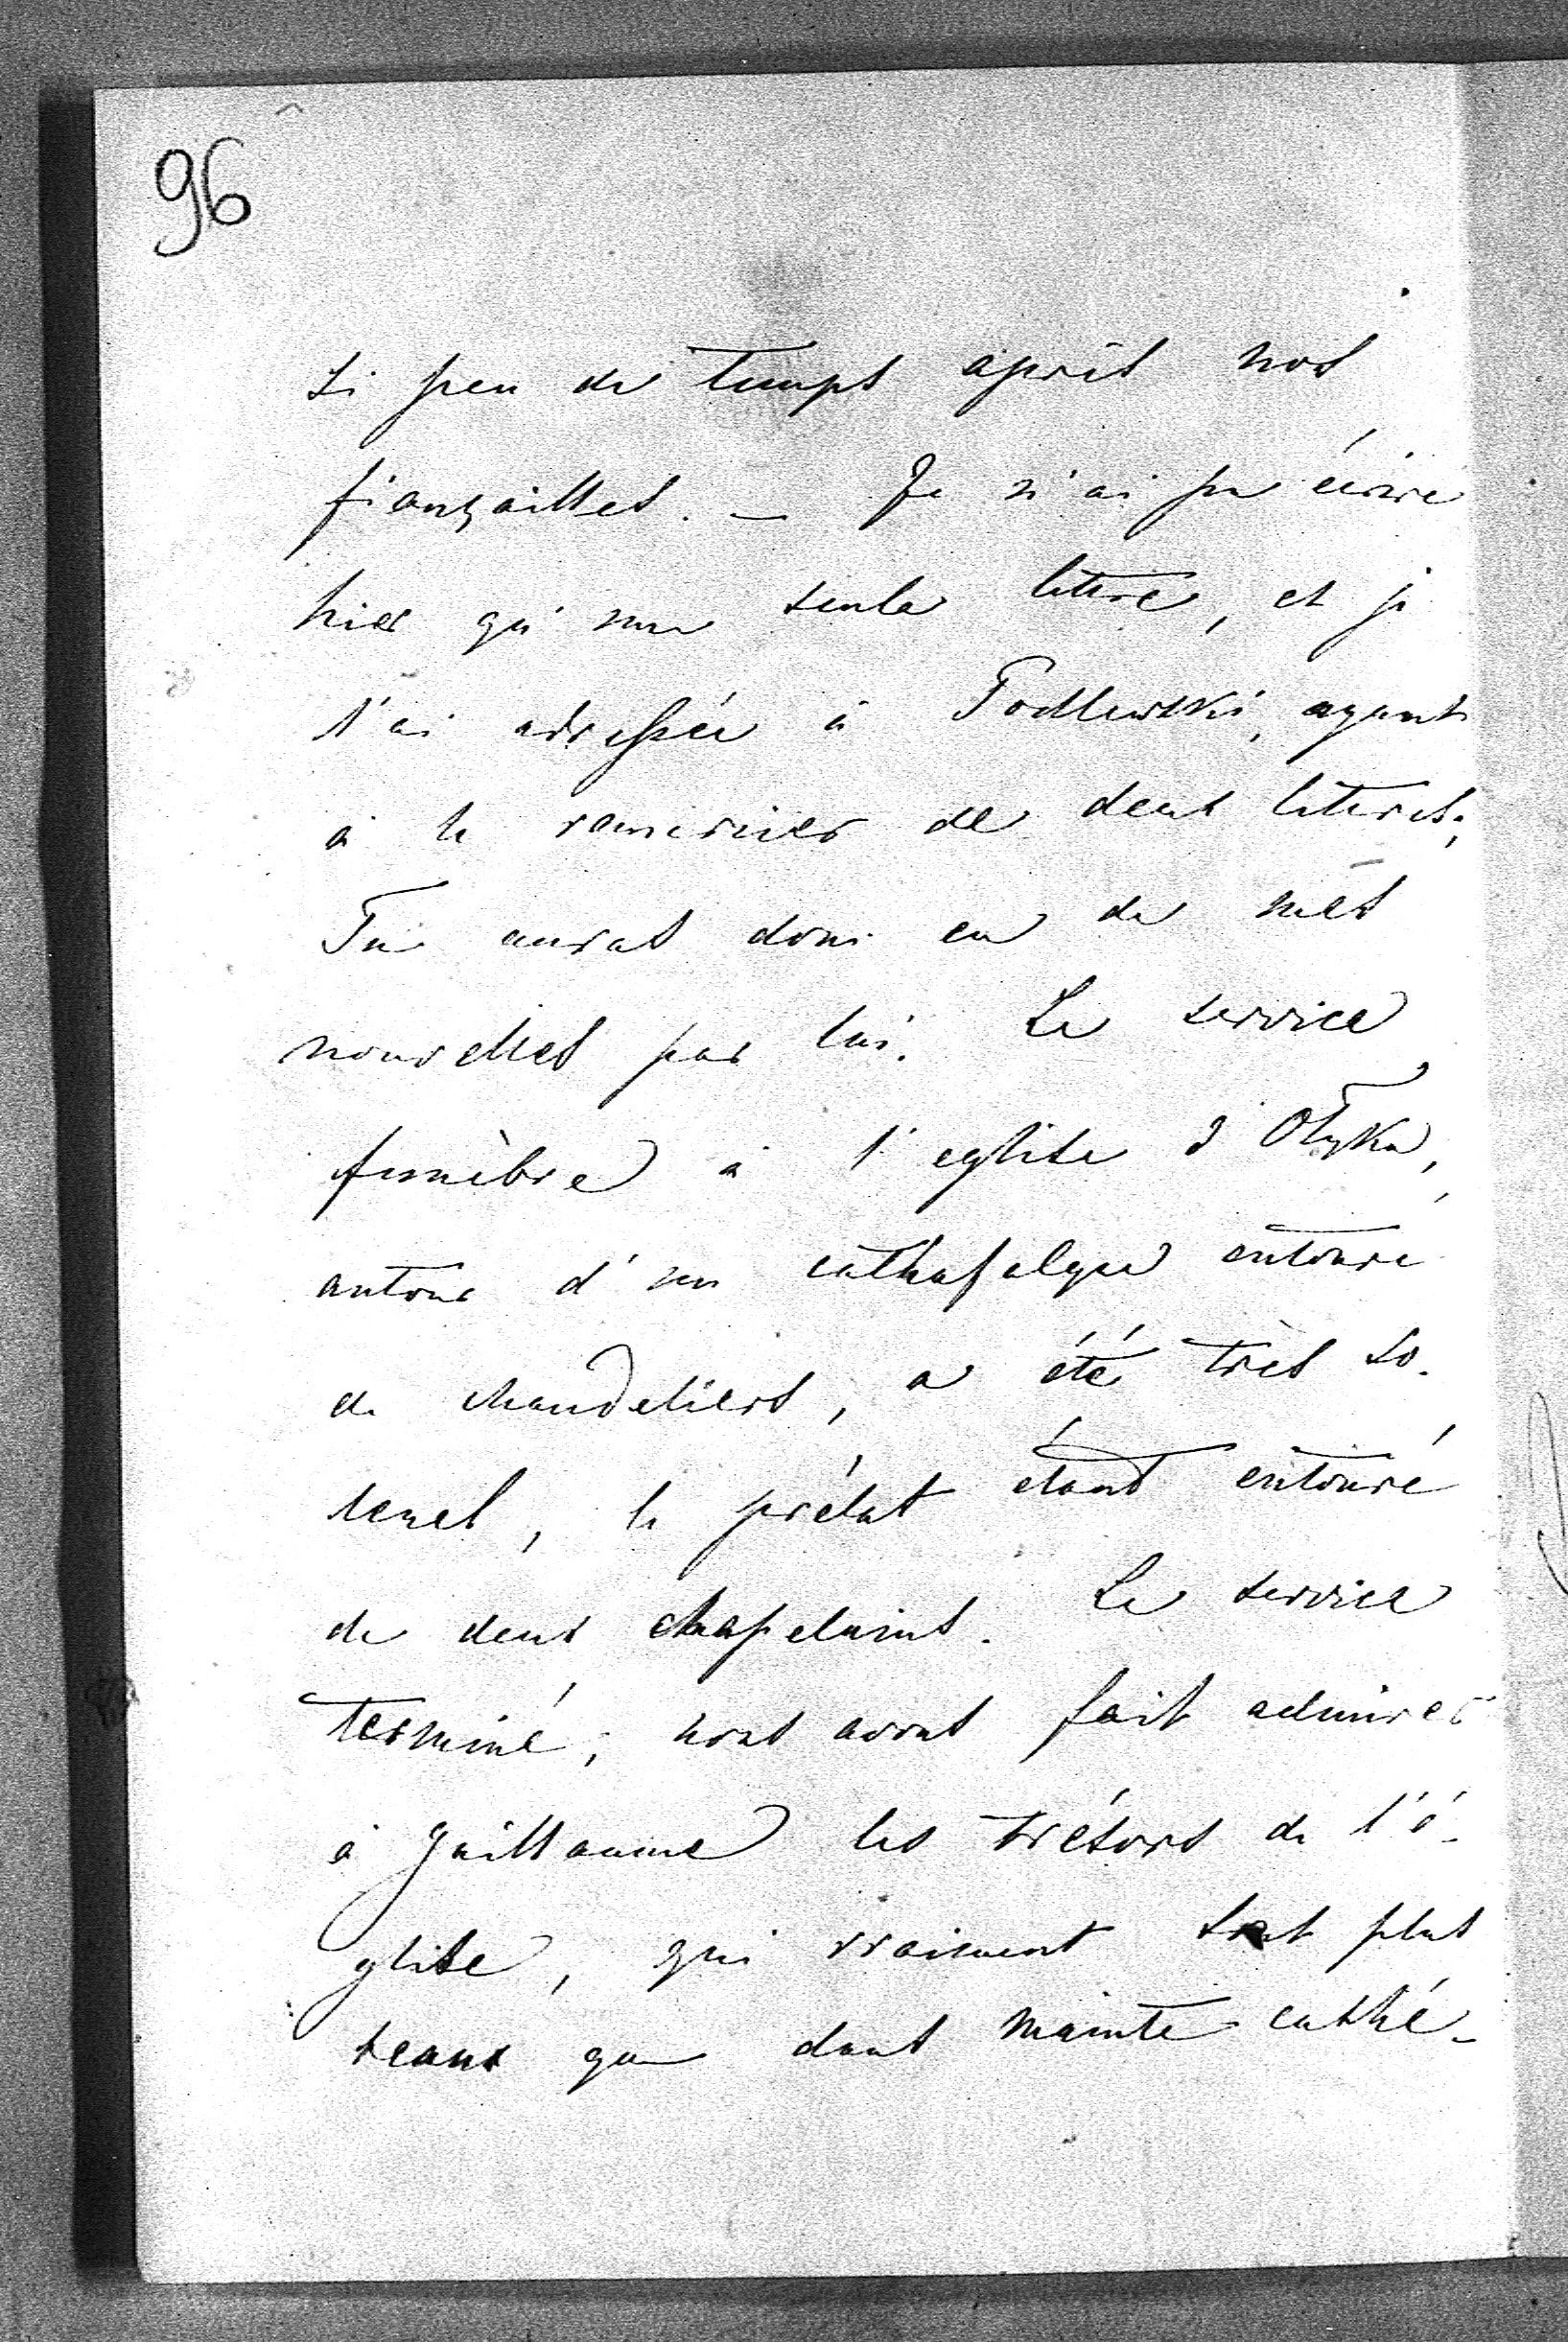 96
si peu de temps après nos
fiançailles. — Je n'ai pu écrire
hier qu'une seule lettre, et je
l'ai adressée à Podlewski, ayant
à le remercier de deux lettres;
Tu auras donc eu de mes
nouvelles par lui. Le service
funèbre à l'eglise d'Olyka,
autour d'un cathafalque entouré
de chandeliers, a été très so-
lenel, le prélat étant entouré
de deux chapelains. Le service
terminé, nous avons fait admirer
à Guillaume les trésors de l'é-
glise, qui vraiment sont plus
beaux que dans mainte cathé-